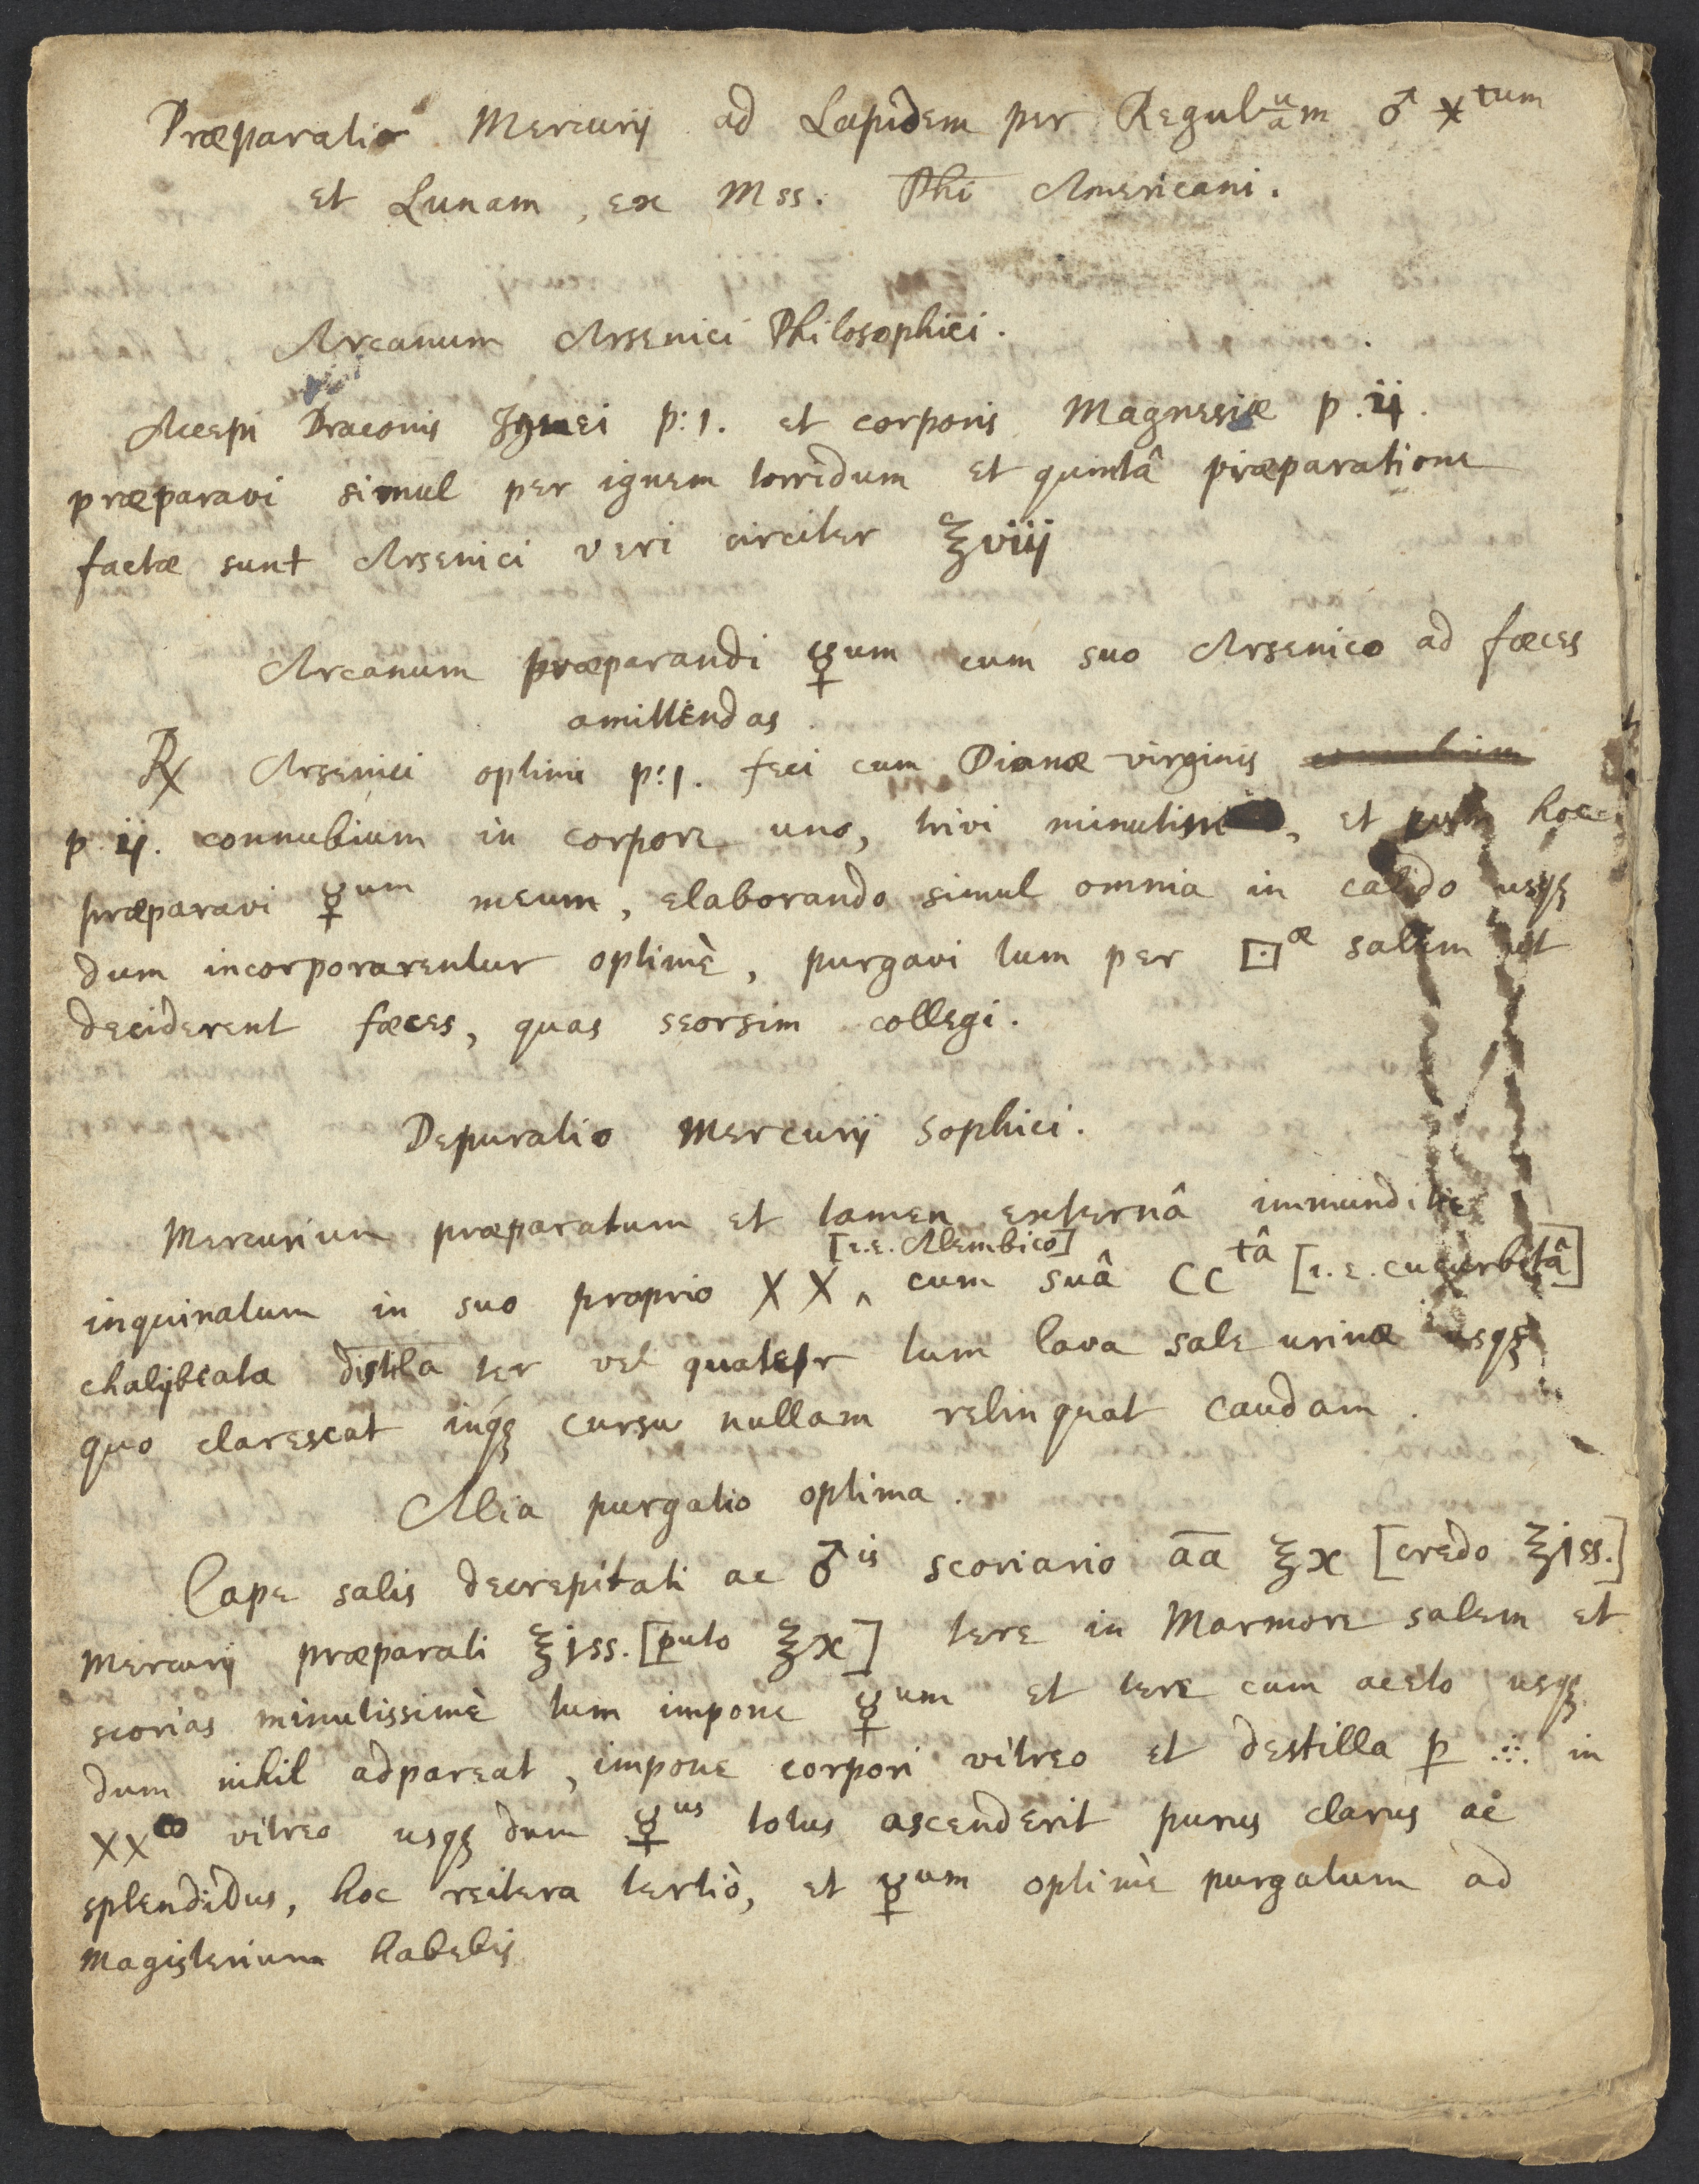 Præparatio Mercurij ad Lapidem per Regulum ♂ ⚹tum
et Lunam, ex Mss. Phi Americani.
Arcanum Arsenici Philosophici.
Accepi Draconis Ignei p:1. et corporis Magnesiæ p.ij.
præparavi simul per ignem torridum et quintâ præparatione
factæ sunt Arsenici veri circiter ℥viij
Arcanum præparandi ☿um cum suo Arsenico ad fœces
amittendas.
℞ Arsenici optimi p:1. feci cum Dianæ virginis
p ij. connubium in corpore uno, trivi minutim, et post hoc
præparavi ☿um meum, elaborando simul omnia in calido usqꝫ
dum incorporarentur optimè, purgavi tum per ⚀æ salem ut
deciderent fœces, quas seorsim collegi.
Depuratio Mercurij Sophici.
Mercurium præparatum et tamen externâ immunditie
[i.e. Alembico]
inquinatum in suo proprio XX ‸ cum suâ CCtâ [i.e. cucurbitâ]
chalybeata distilla ter vel quater tum lava sale urinæ usqꝫ
quo clarescat inqꝫ cursu nullam relinquat caudam.
Alia purgatio optima.
Cape salis decrepitati ac ♂is scoriario āa ℥x [credo ℥jss.]
Mercurij præparati ℥jss. [puto ℥x] tere in Marmore salem et
scorias minutissimè tum impone ☿um et tere cum aceto usqꝫ
dum nihil adpareat, impone corpori vitreo et destilla ꝑ ∴ in
XXo vitreo usqꝫ dum ☿us totus ascenderit purus clarus ac
splendidus, hoc reitera tertiò, et ☿um optimè purgatum ad
Magisterium habebis